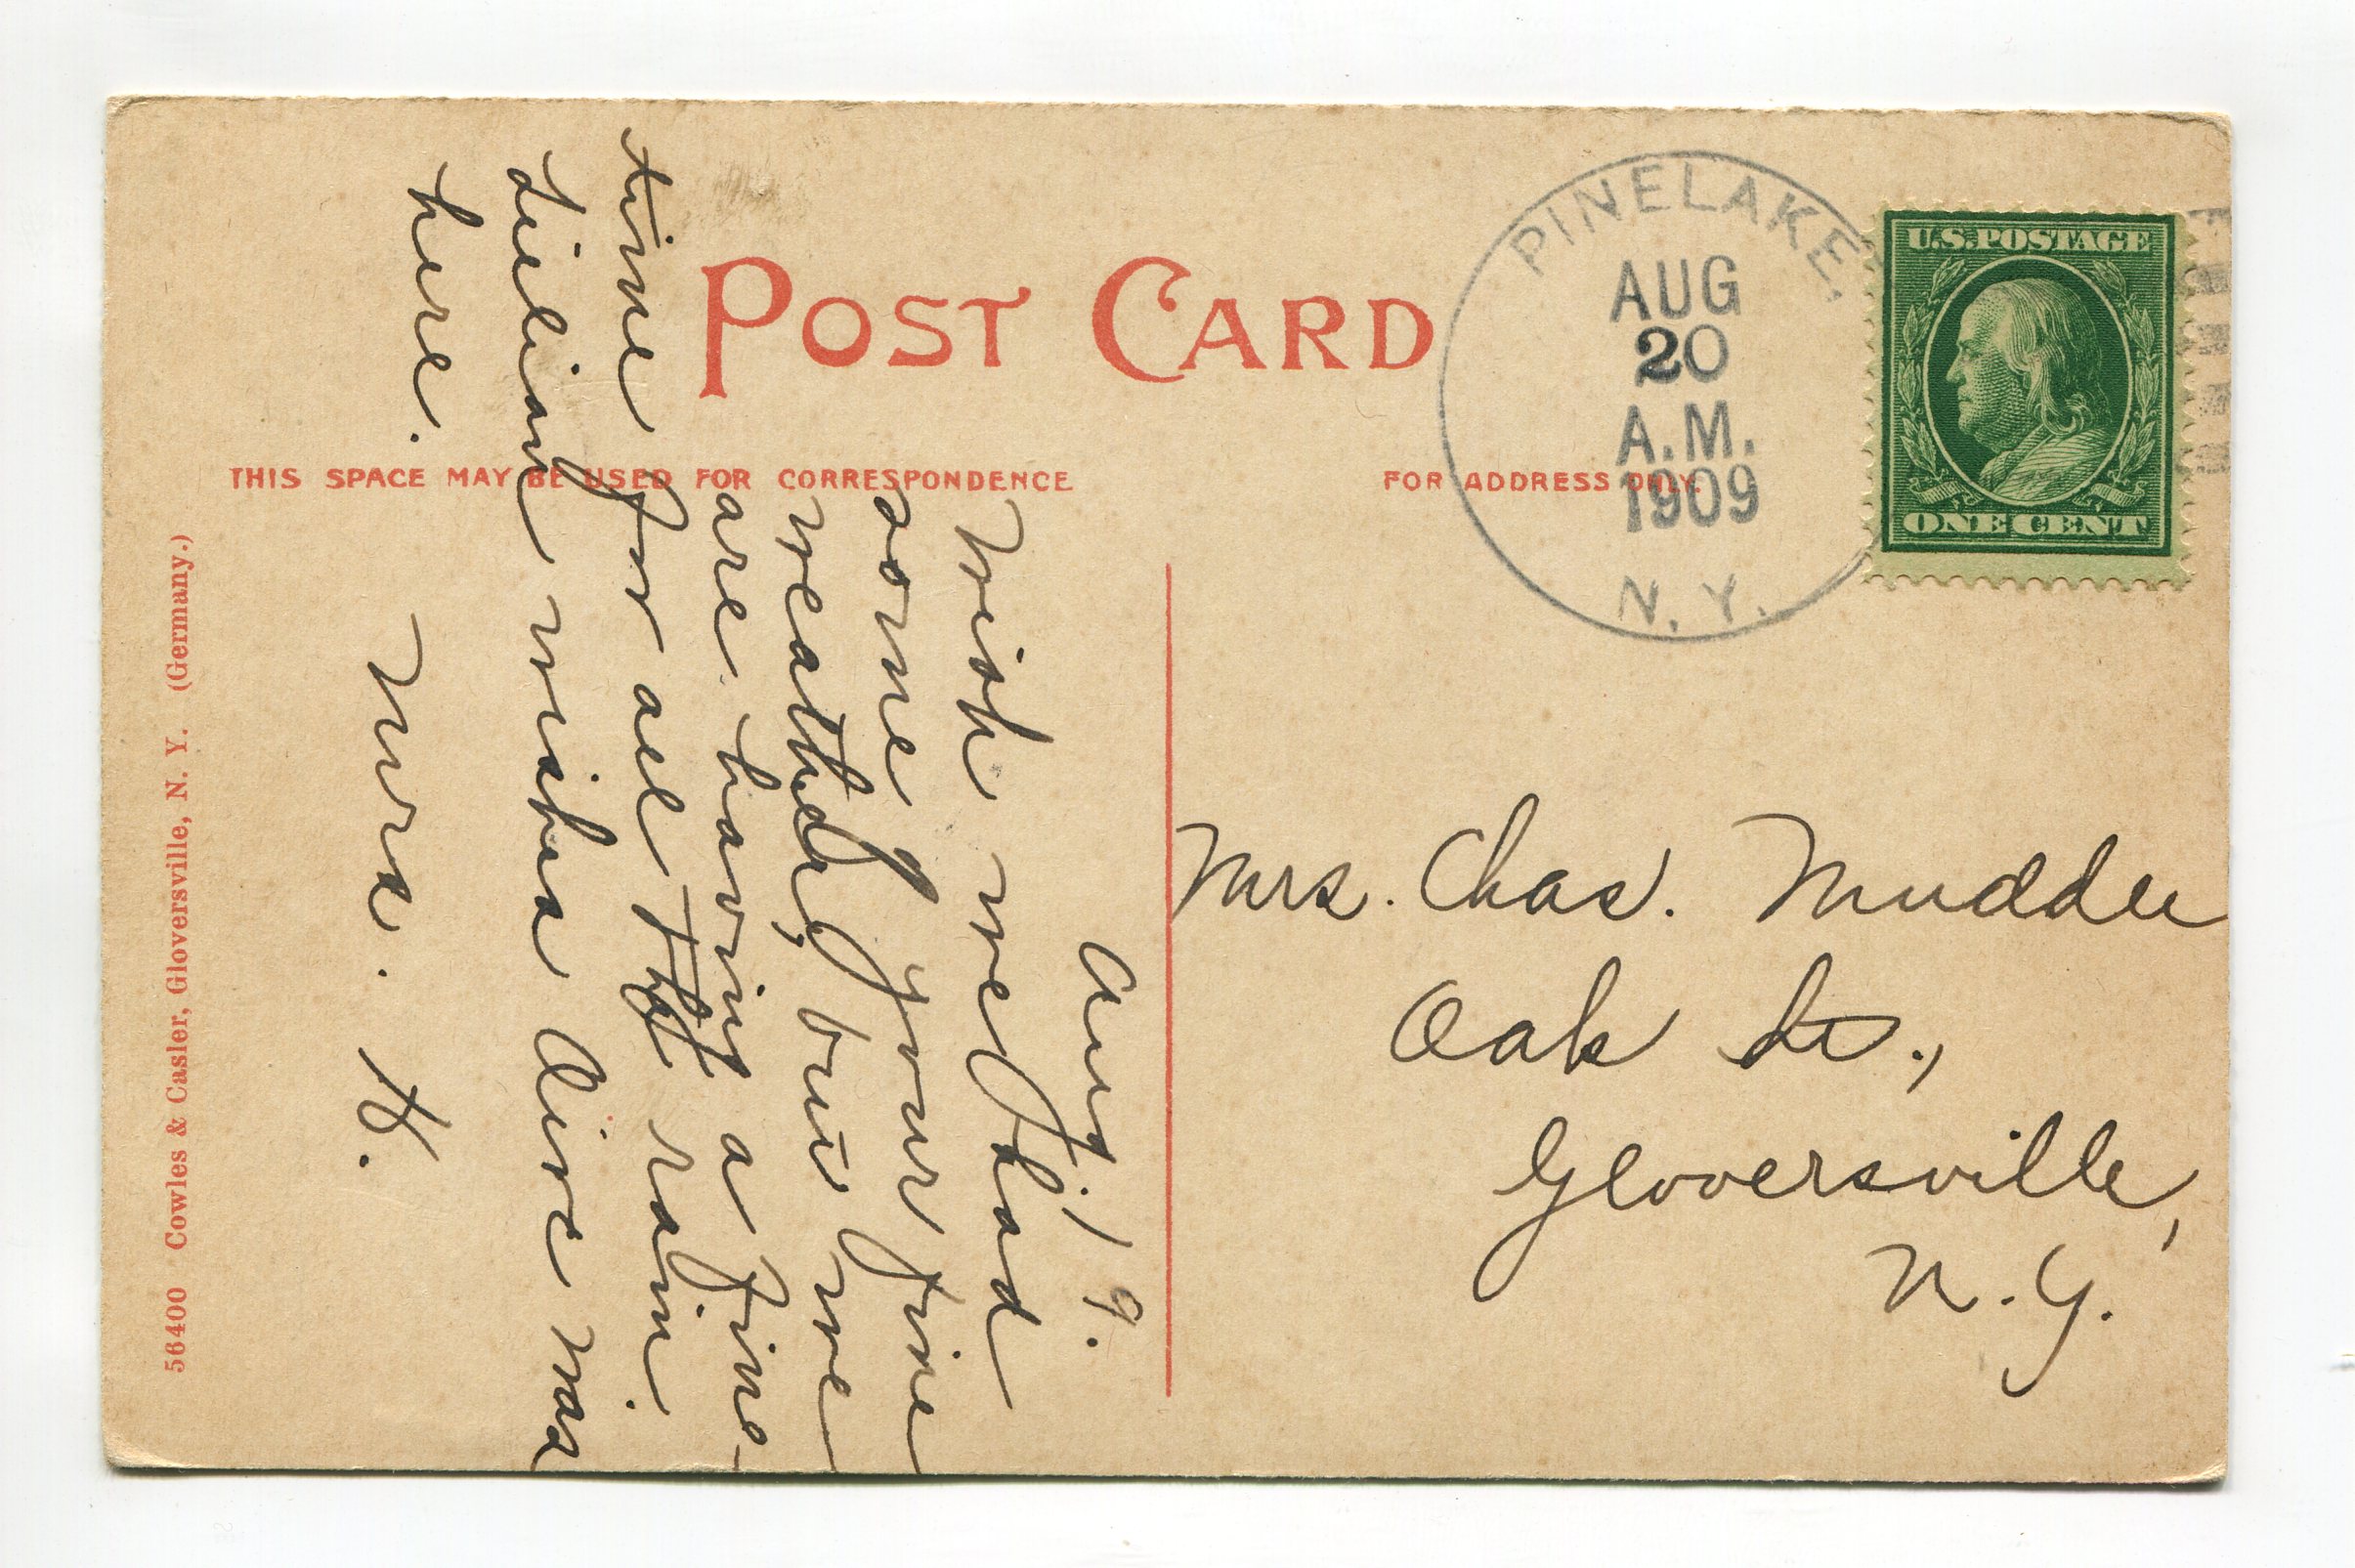 POST CARD
THIS SPACE MAY BE USED FOR CORRESPONDENCE
FOR ADDRESS ONLY.
PINELAKE,
AUG
20
A.M.
1909
N. Y.
U.S. POSTAGE
ONE CENT
Aug. 19.
Wish we had
some of your fine
weather, but we
are having a fine
time for all the rain.
Lillian wishes Aire was
here.
Mrs. H.
Mrs. Chas. Mudde
Oak St.,
Gloversville,
N. Y.
56400 Cowles & Casler, Gloversville, N. Y. (Germany.)